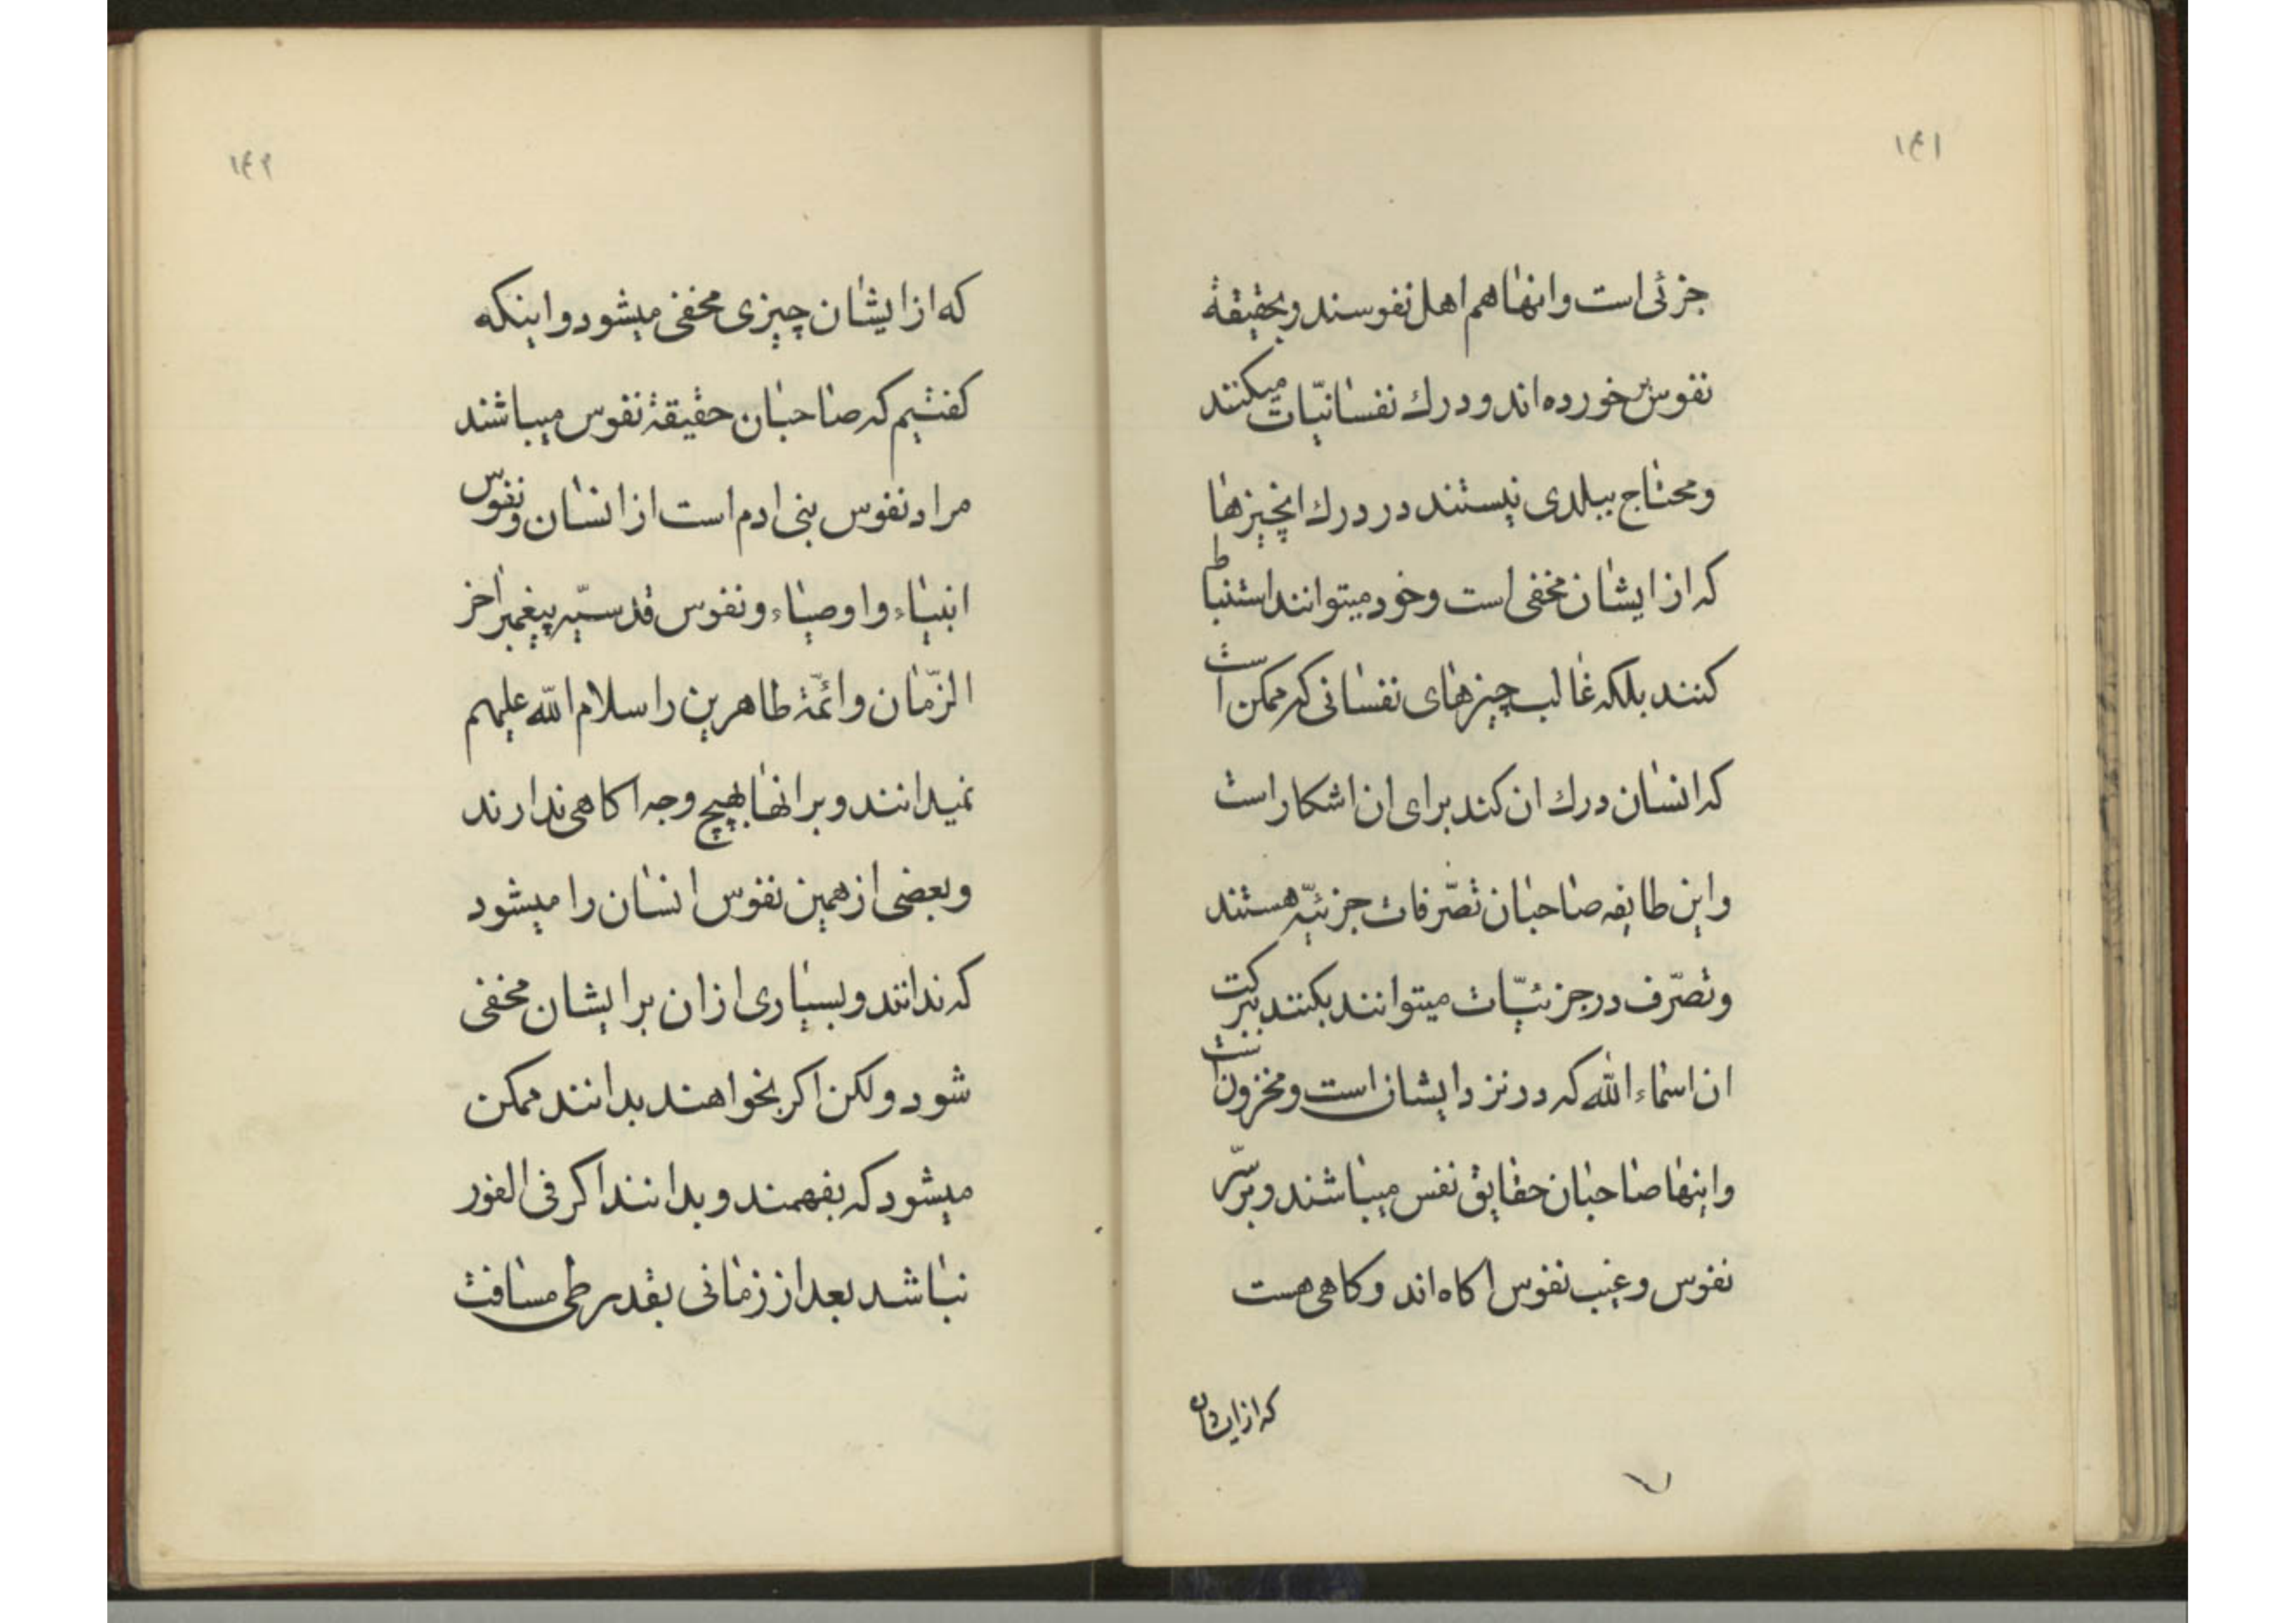 ۱۴۱
جزئی است وانها هم اهل نفوسند و بحقیقة
نفوس بر خورده اند و درك نفسانیّات میکنند
و محتاج ببلدی نیستند در درك انچیزها
که از ایشان مخفی است و خود میتوانند استنباط
کنند بلکه غالب چیزهای نفسانی که ممکن است
که انسان درك ان کند برای ان اشکار است
و این طایفه صاحبان تصّرفات جزئیّه هستند
و تصّرف در جزئیّات میتوانند بکنند ببرکت
ان اسماء الله که در نزد ایشان است و مخزون است
و اینها صاحبان حقایق نفس میباشند و بر سرّ
نفوس و غیب نفوس اکاه اند و کاهی هست
که از ایشان
۱۴۲
که از ایشان چیزی مخفی میشود و اینکه
کفتیم که صاحبان حقیقة نفوس میباشند
مراد نفوس بنی ادم است از انسان و نفوس
انبیاء و اوصیاء و نفوس قدسیّه پیغمبر اخر
الزّمان و ائمّة طاهرین را سلام الله علیهم
نمیدانند و بر انها بهیچ وجه اکاهی ندارند
و بعضی از همین نفوس انسان را میشود
که ندانند و بسیاری از ان بر ایشان مخفی
شود ولکن اکر بخواهند بدانند ممکن
میشود که بفهمند و بدانند اکر فی الفور
نباشد بعد از زمانی بقدر طی مسافت